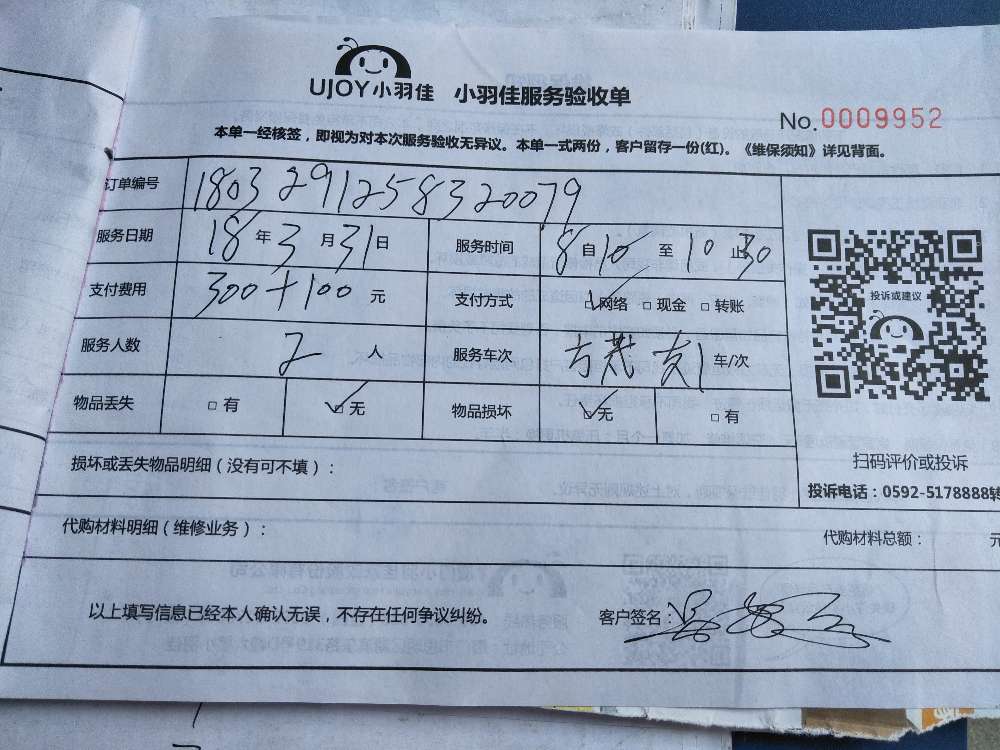 UJOY小羽佳 小羽佳服务验收单
No.0009952
本单一经核签，即视为对本次服务验收无异议。本单一式两份，客户留存一份(红)。《维保须知》详见背面。
订单编号 1803291258320079
服务日期 18年3月31日 服务时间 8自10至10止30
支付费用 300+100元 支付方式 □网络 □现金 □转账
投诉或建议
服务人数 2人 服务车次 1车/次
物品丢失 □有 □无 物品损坏 □无 □有
损坏或丢失物品明细（没有可不填）：
扫码评价或投诉
投诉电话：0592-5178888转
代购材料明细（维修业务）： 代购材料总额： 元
以上填写信息已经本人确认无误，不存在任何争议纠纷。 客户签名：